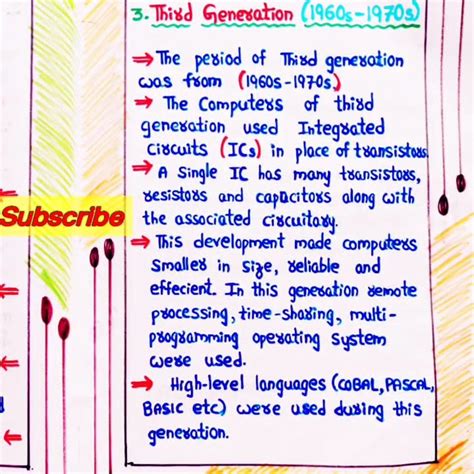 3. Third Generation (1960s-1970s)
⇒ The period of Third generation
was from (1960s-1970s)
→ The Computers of third
generation used Integrated
Circuits (ICs) in place of transistors.
→ A Single IC has many transistors,
resistors and capacitors along with
the associated circuitary.
Subscribe
→ This development made computers
smaller in size, reliable and
effecient. In this generation remote
processing, time-sharing, multi-
programming operating system
were used.
→ High-level languages (COBAL, PASCAL,
BASIC etc) were used during this
generation.